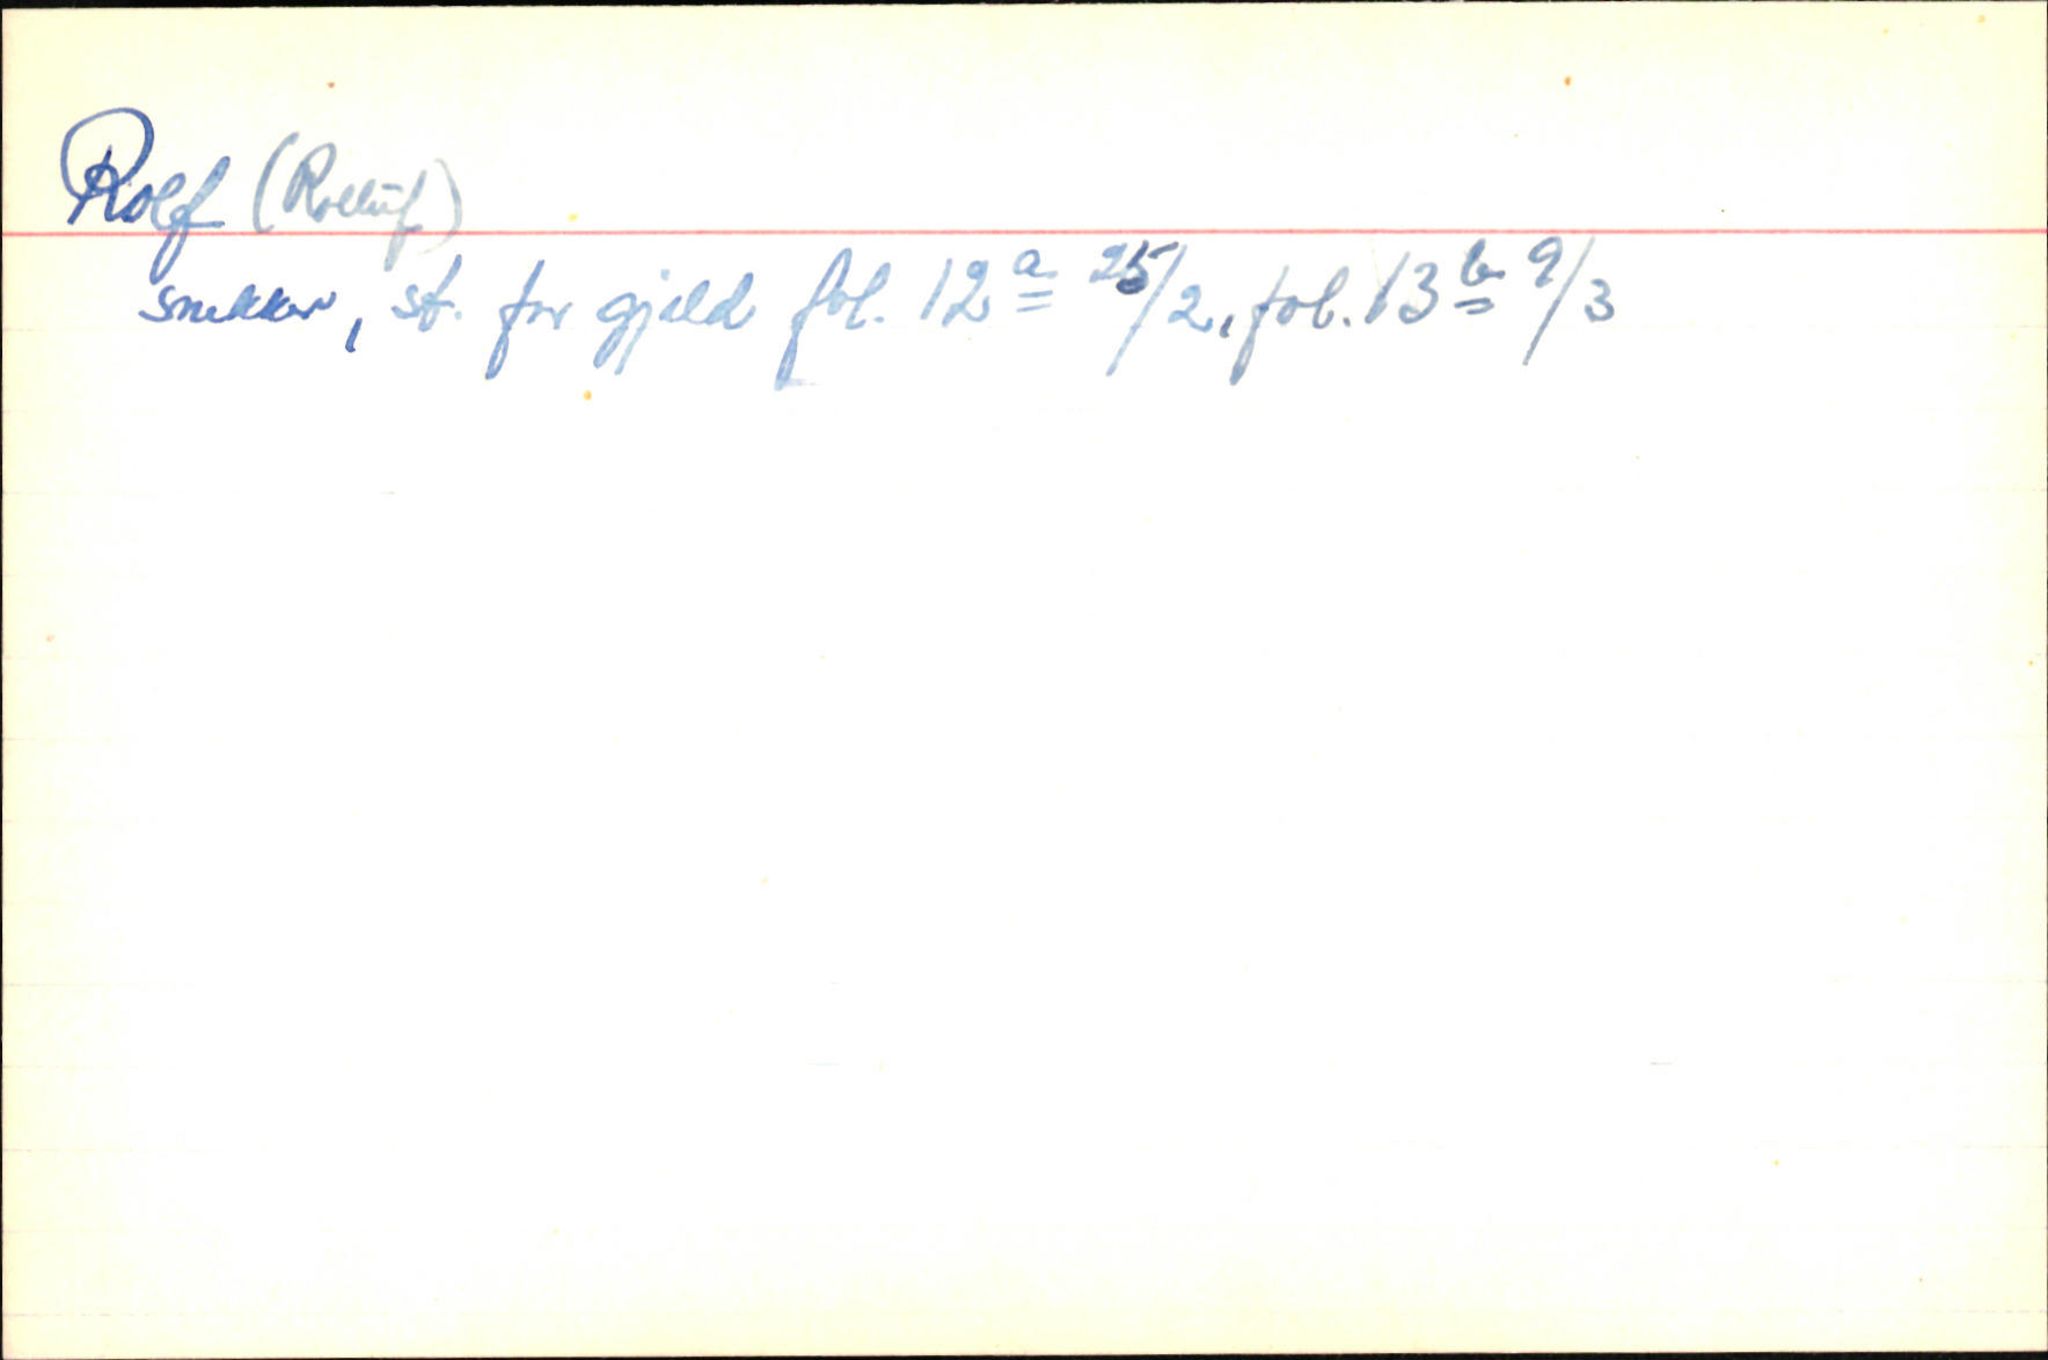 Rolf (Rolluf)
snekker, st. for gjeld fol. 12a 25/2, fol. 13b 9/3